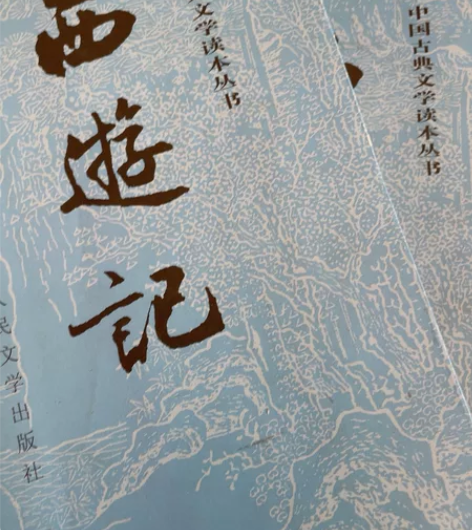 西遊記
文学读本丛书
人民文学出版社
中国古典文学读本丛书